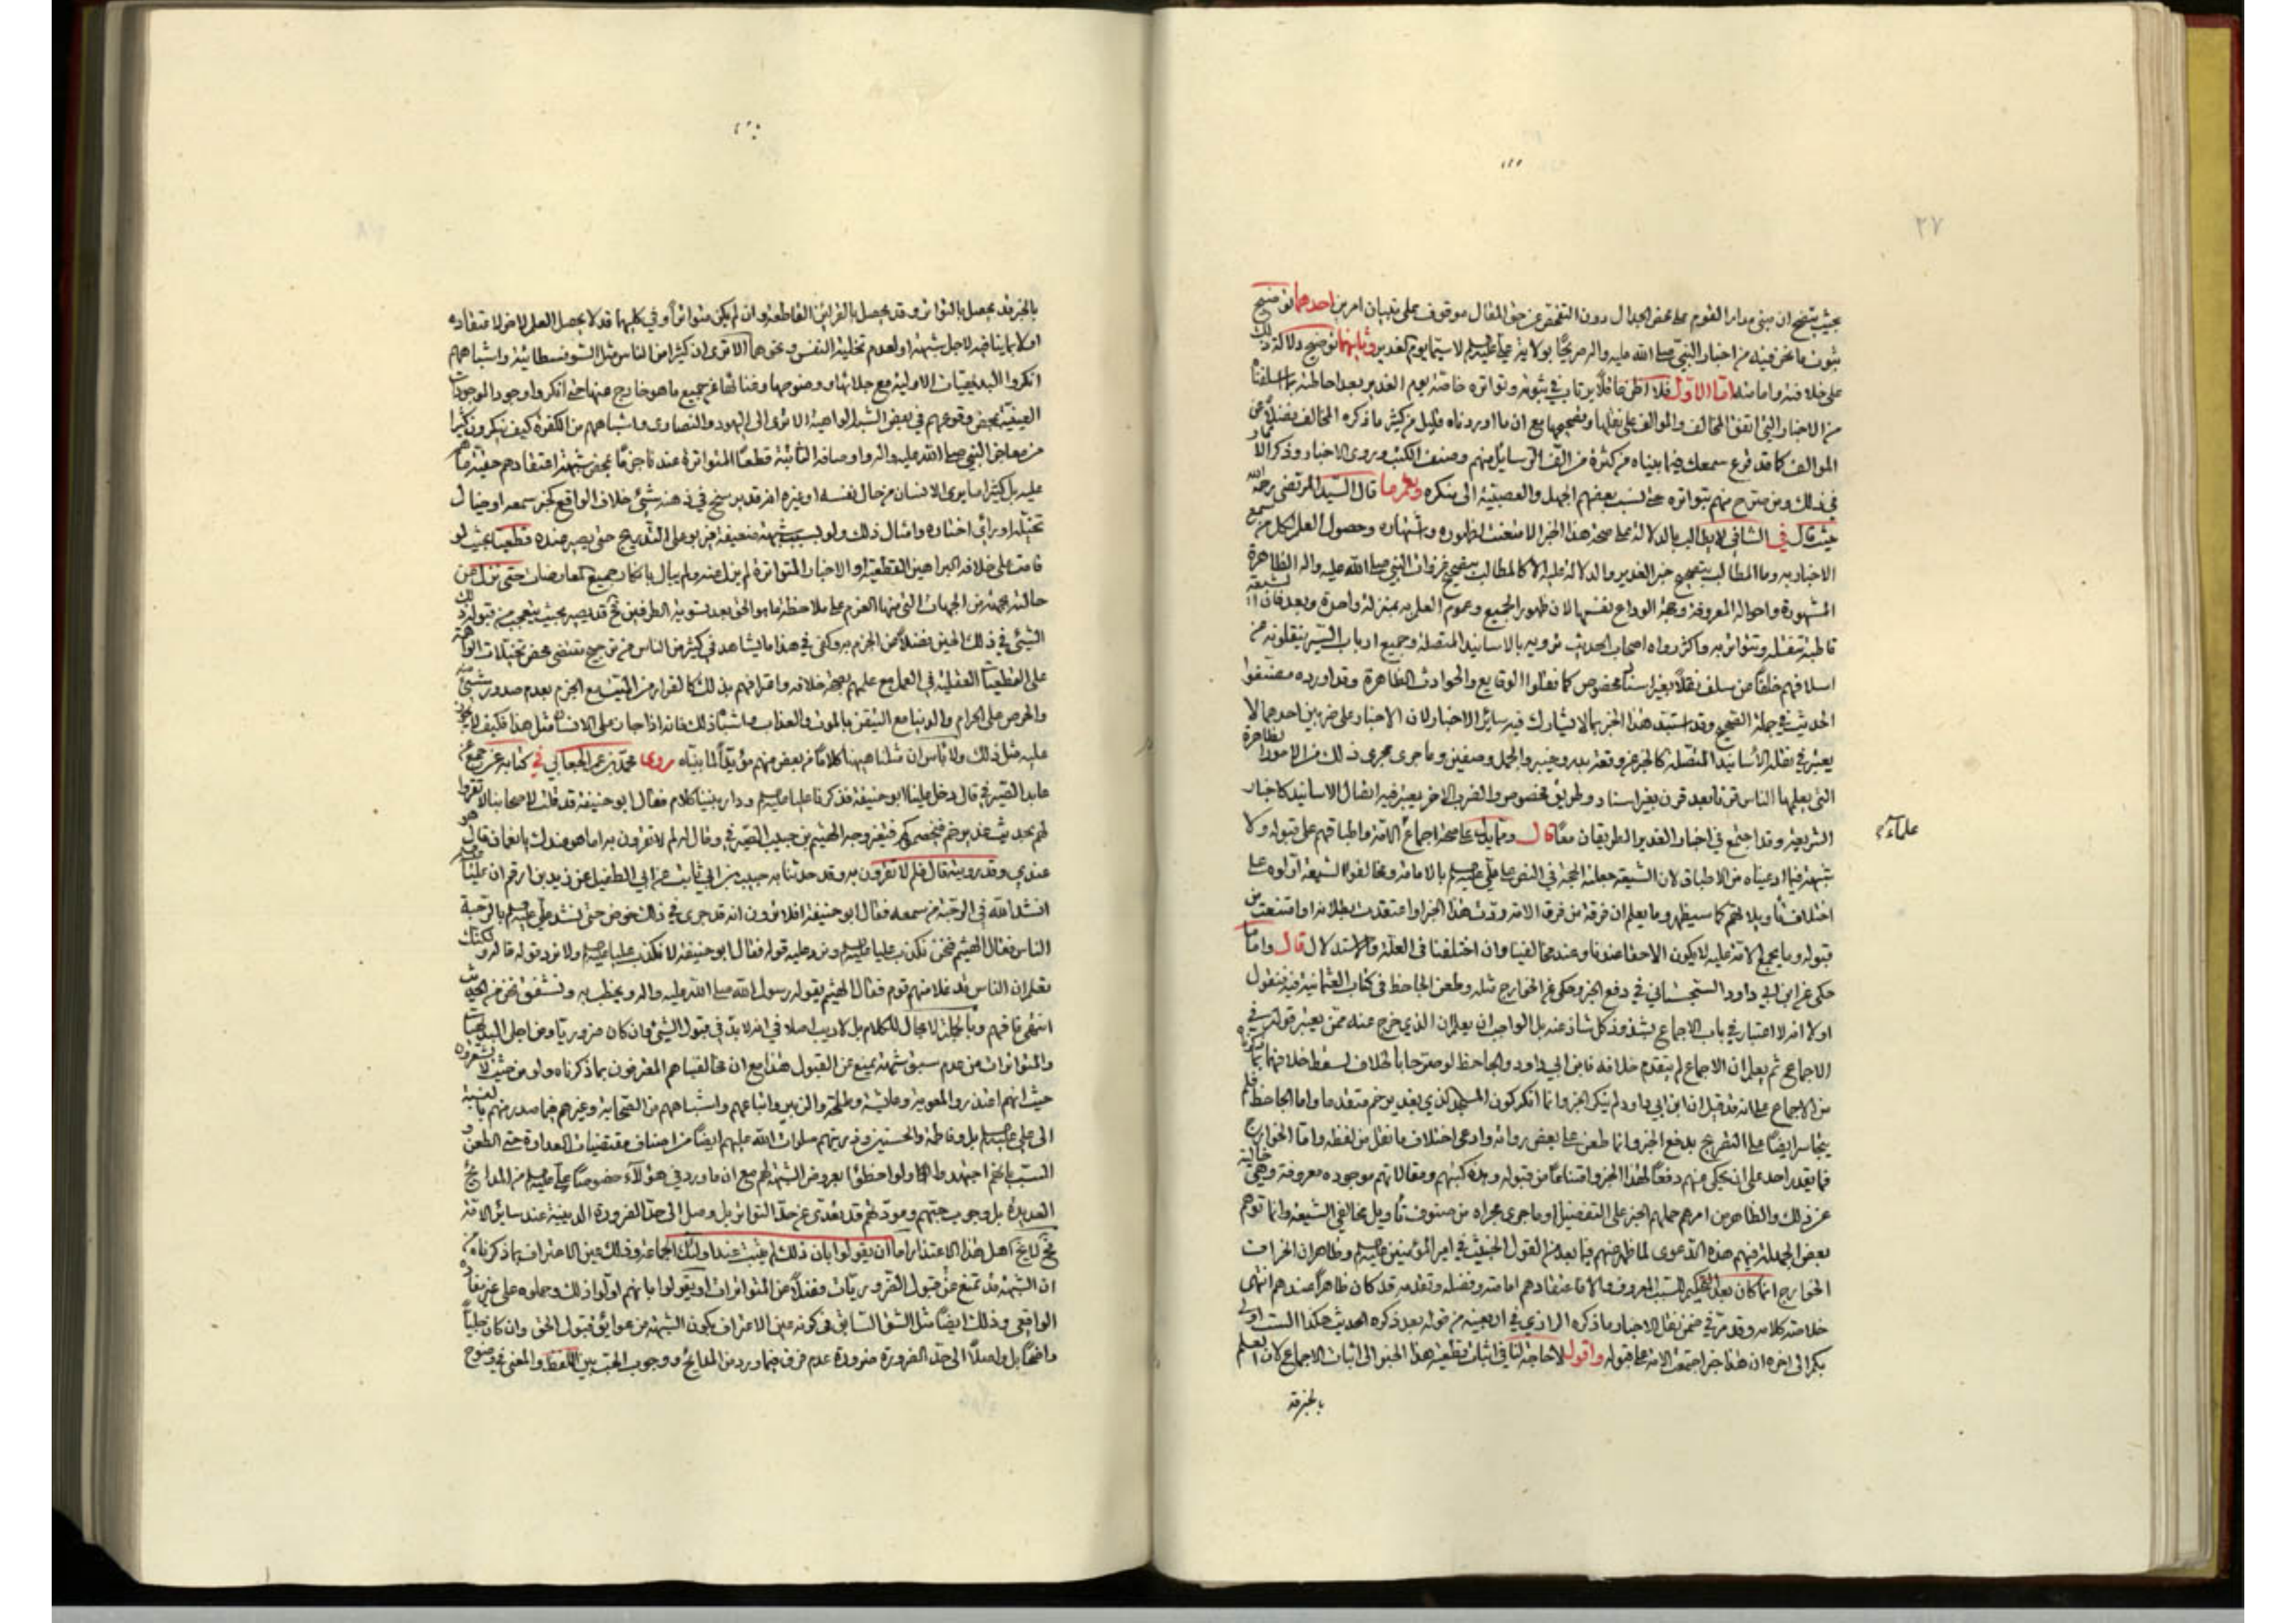 ٢٧
بحيث يتضح ان مبنى مدار القوم على محض الجدال دون التفحص عن حق المقال موقوف على تبيان امرين احدهما توضيح
ثبوت ما نحن فيه من اخبار النبي صلى الله عليه واله صريحا بولاية علي عليه السلم لا سيما يوم الغدير وثانيهما توضيح دلالة ذلك
على خلافته وامامته اما الاول فلا اظن عاقلا يرتاب في ثبوته وتواتره خاصة يوم الغدير بعد احاطته بما سلفنا
من الاخبار التي اتفق المخالف والموالف على نقلها وتصحيحها مع ان ما اوردناه قليل من كثير ما ذكره المخالف فضلا عن
الموالف كما قد قرع سمعك فيما بيناه من كثرة من الف الرسايل منهم وصنف الكتب وروى الاخبار وذكر الاثار
في ذلك ومن صرح منهم بتواتره حتى نسب بعضهم الجهل والعصبية الى منكره ونعم ما قال السيد المرتضى رحمه الله
حيث قال في الشافي لا يطالب بالدلالة على صحة هذا الخبر الا متعنت لظهوره واشتهاره وحصول العلم لكل من سمع
الاخبار به وما المطالب بتصحيح خبر الغدير والدلالة عليه الا كالمطالب بتصحيح غزوات النبي صلى الله عليه واله الظاهرة
المشهورة واحواله المعروفة وحجة الوداع نفسها لان ظهور الجميع وعموم العلم به بمنزلة واحدة وبعد فان الشيعة
قاطبة تنقله وتتواتر به واكثر رواه اصحاب الحديث ترويه بالاسانيد المتصلة وجميع ارباب السير ينقلونه عن
اسلافهم خلفا عن سلف نقلا بغير اسناد مخصوص كما نقلوا الوقايع والحوادث الظاهرة وقد اورده مصنفوا
الحديث في جملة الصحيح وقد استبد هذا الخبر بما لا يشارك فيه سائر الاخبار لان الاخبار على ضربين احدهما لا
يعتبر في نقله الأسانيد المتصلة كالخبر عن وقعة بدر وخيبر والجمل وصفين وما جرى مجرى ذلك من الامور الظاهرة
التي يعلمها الناس قرنا بعد قرن بغير اسناد وطريق مخصوص والضرب الاخر يعتبر فيه اتصال الاسانيد كاخبار
الشريعة وقد اجتمع في اخبار الغدير الطريقان معا قال ومما يدل على صحته اجماع الامة واطباقهم على قبوله ولا
علماء
شبهة فيما ادعيناه من الاطباق لان الشيعة جعلته الحجة في النص على علي عليه السلم بالامامة ومخالفوا الشيعة اولوه على
اختلاف تأويلاتهم كما سيظهر وما يعلم ان فرقة من فرق الامة ردت هذا الخبر او اعتقدت بطلانه او امتنعت من
قبوله وما يجمع الامة عليه لا يكون الا حقا عندنا وعند مخالفينا وان اختلفنا في العلة والاستدلال قال واما ما
حكي عن ابن ابي داود السجستاني في دفع الخبر وحكي عن الخوارج مثله وطعن الجاحظ في كتاب العثمانية فيه فنقول
اولا انه لا اعتبار في باب الاجماع بشذوذ كل شاذ عنه بل الواجب ان يعلم ان الذي خرج عنه ممن يعتبر قوله في
الاجماع ثم يعلم ان الاجماع لم يتقدم خلافه فابن ابي داود والجاحظ لو صرحا بالخلاف لسقط خلافهما بما ذكرناه
من الاجماع على انه قد قيل ان ابن ابي داود لم ينكر الخبر وانما انكر كون المسجد الذي بغدير خم متقدما واما الجاحظ فلم
يتجاسر ايضا على التصريح بدفع الخبر وانما طعن على بعض رواته وادعى اختلاف ما نقل من لفظه واما الخوارج
فما يقدر احد على ان يحكي منهم دفعا لهذا الخبر وامتناعا من قبوله وهذه كتبهم ومقالاتهم موجوده معروفة وهي خالية
عن ذلك والظاهر من امرهم حملهم الخبر على التفضيل او ما جرى مجراه من صنوف تأويل مخالفي الشيعة وانما توهم
بعض الجهلة فيهم هذه الدعوى لما ظهر منهم فيما بعد من القول الخبيث في امير المؤمنين عليه السلم وظاهر ان انحراف
الخوارج انما كان بعد التحكيم للسبب المعروف والا فاعتقادهم امامته وفضله وتقدمه قد كان ظاهرا عندهم انتهى
خلاصة كلامه وقد مر في ضمن نقل الاخبار ما ذكره الرازي في اربعينه من قوله بعد ذكره الحديث هكذا الست اولى
بكم الى اخره ان هذا خبر اجتمعت الامة على قبوله واقول لا حاجة لنا في اثبات قطعية هذا الخبر الى اثبات الاجماع لان العلم
بالخبر قد
بالخبر قد يحصل بالتواتر وقد يحصل بالقرائن القاطعة وان لم يكن متواترا وفي كليهما قد لا يحصل العلم لا من لا عتقاده
اولا بما يناقضه لاجل شبهة او لعدم تخلية النفس ونحوهما الا ترى ان كثيرا من الناس مثل السوفسطائية واشباههم
انكروا البديهيات الاولية مع جلائها ووضوحها وغنائها عن جميع ما هو خارج عنها حتى انكروا وجود الموجودات
العينية بمحض وقوعهم في بعض الشبه الواهية الا ترى الى اليهود والنصارى واشباههم من الكفرة كيف ينكرون كثيرا
من معاجز النبي صلى الله عليه واله واوصافه الثابتة قطعا المتواترة عندنا جزما بمحض شبهة اعتقادهم حقية ما هم
عليه بل كثيرا ما يرى الانسان من حال نفسه او غيره انه قد يرسخ في ذهنه شيئ خلاف الواقع لخبر سمعه او خيال
تخيله او رأى اختاره وامثال ذلك ولو لسبب شبهة ضعيفة فيربو على التدريج حتى يصير عنده قطعيا بحيث لو
قامت على خلافه البراهين القطعية او الاخبار المتواترة لم يزل عنه ولم يبال بانكار جميع المعارضات حتى نزل من
حالته لجهة من الجهات التي منها العزم على ملاحظة ما هو الحق بعد تسوية الطرفين فح قد يصير بحيث يتعجب من قبوله ذلك
الشيئ في ذلك الحين فضلا عن الجزم به وكفى في هذا ما يشاهد في كثير من الناس من ترجيح مقتضى محض تخيلات الواهمة
على القطعيات العقلية في العمل مع علمهم بصحة خلافه واعترافهم بذلك كالفرار من الميت مع الجزم بعدم صدور شيئ منه
والحرص على الحرام والدنيا مع التيقن بالموت والعذاب وما شبه ذلك فانه اذا جاز على الانسان مثل هذا فكيف لا يجوز
عليه مثل ذلك ولا بأس ان نقلنا ههنا كلاما من بعض منهم مؤيدا لما بيناه روى محمد بن عمر الجعابي في كتابه عن جمع عن
عابد الصيرفي قال دخل علينا ابو حنيفة فذكرنا عليا عليه السلم ودار بيننا كلام فقال ابو حنيفة قد قلت لاصحابنا لا تقروا
لهم بحديث غدير خم فيخصموكم فتغير وجه الهيثم بن حبيب الصيرفي وقال له لم لا تقرون به اما هو عندك يا نعمان قال هو
عندي وقد رويته قال فلم لا تقرون به وقد حدثنا به حبيب بن ابي ثابت عن ابي الطفيل عن زيد بن ارقم ان عليا
انشد الله في الرحبة من سمعه فقال ابو حنيفة افلا ترون انه قد جرى في ذلك خوض حتى نشد علي عليه السلم بالرحبة
الناس فقال الهيثم فنحن نكذب عليا عليه السلم ونرد عليه قوله فقال ابو حنيفة لا نكذب عليا عليه السلم ولا نرد قوله قاله ولكنك
تعلم ان الناس قد غلا منهم قوم فقال الهيثم يقوله رسول الله صلى الله عليه واله ويخطب به ونشفق نحن من الحديث
والمتواترات من عدم سبق شبهة يمنع عن القبول هذا مع ان مخالفينا هم المعترفون بما ذكرناه ولو من حيث لا يشعرون
حيث انهم اعتذروا لمعوية وعايشة وطلحة والزبير واتباعهم واشباههم من الصحابة وغيرهم فيما صدر منهم بالنسبة
الى علي عليه السلم بل وفاطمة والحسنين وذريتهم صلوات الله عليهم ايضا من اصناف مقتضيات العداوة حتى الطعن و
السب بانهم اجتهدوا وتأولوا فاخطؤا بعروض الشبهة لهم مع ان ما ورد في هؤلاء خصوصا علي عليه السلم من المدائح
العديدة بل وجوب حبهم ومودتهم قد تعدى عن حد التواتر بل وصل الى حد الضرورة الدينية عند سائر الامة
فح لا يخ اهل هذا الاعتذار اما ان يقولوا بان ذلك لم يثبت عند اولئك الجماعة وذلك عين الاعتراف بما ذكرناه من
ان الشبهة قد تمنع عن قبول الضروريات فضلا عن المتواترات او يقولوا بانهم اولوا ذلك وحملوه على غير مفاده
الواقعي وذلك ايضا مثل الشق السابق في كونه عين الاعتراف بكون الشبهة من عوائق قبول الحق وان كان جليا
واضحا بل واصلا الى حد الضرورة ضرورة عدم فرق فيما ورد من المدايح ووجوب الحب بين اللفظ والمعنى في وضوح